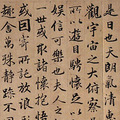 是日也天朗氣清
觀宇宙之大俯察
所以遊目騁懷
娛信可樂也夫人之
一世或取諸懷抱悟
或因寄所託放浪
趣舍萬殊靜躁不